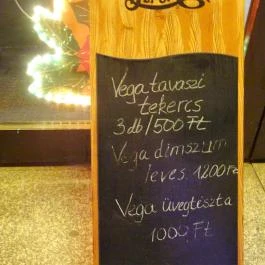 Vega tavaszi
tekercs
3 db/500 Ft
Vega dimszum
leves 1200 Ft
Vega üvegtészta
1000 Ft